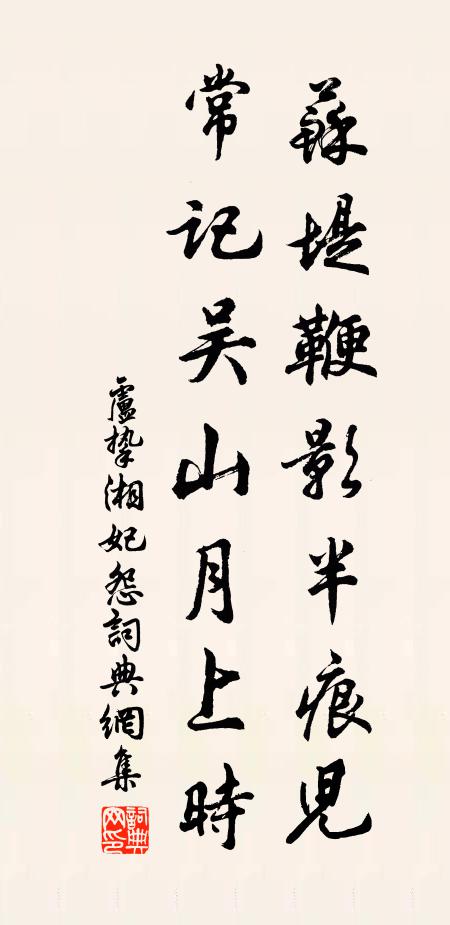 蘇堤鞭影半痕兒
常記吴山月上時
盧摯湘妃怨詞典網集
詞典網印